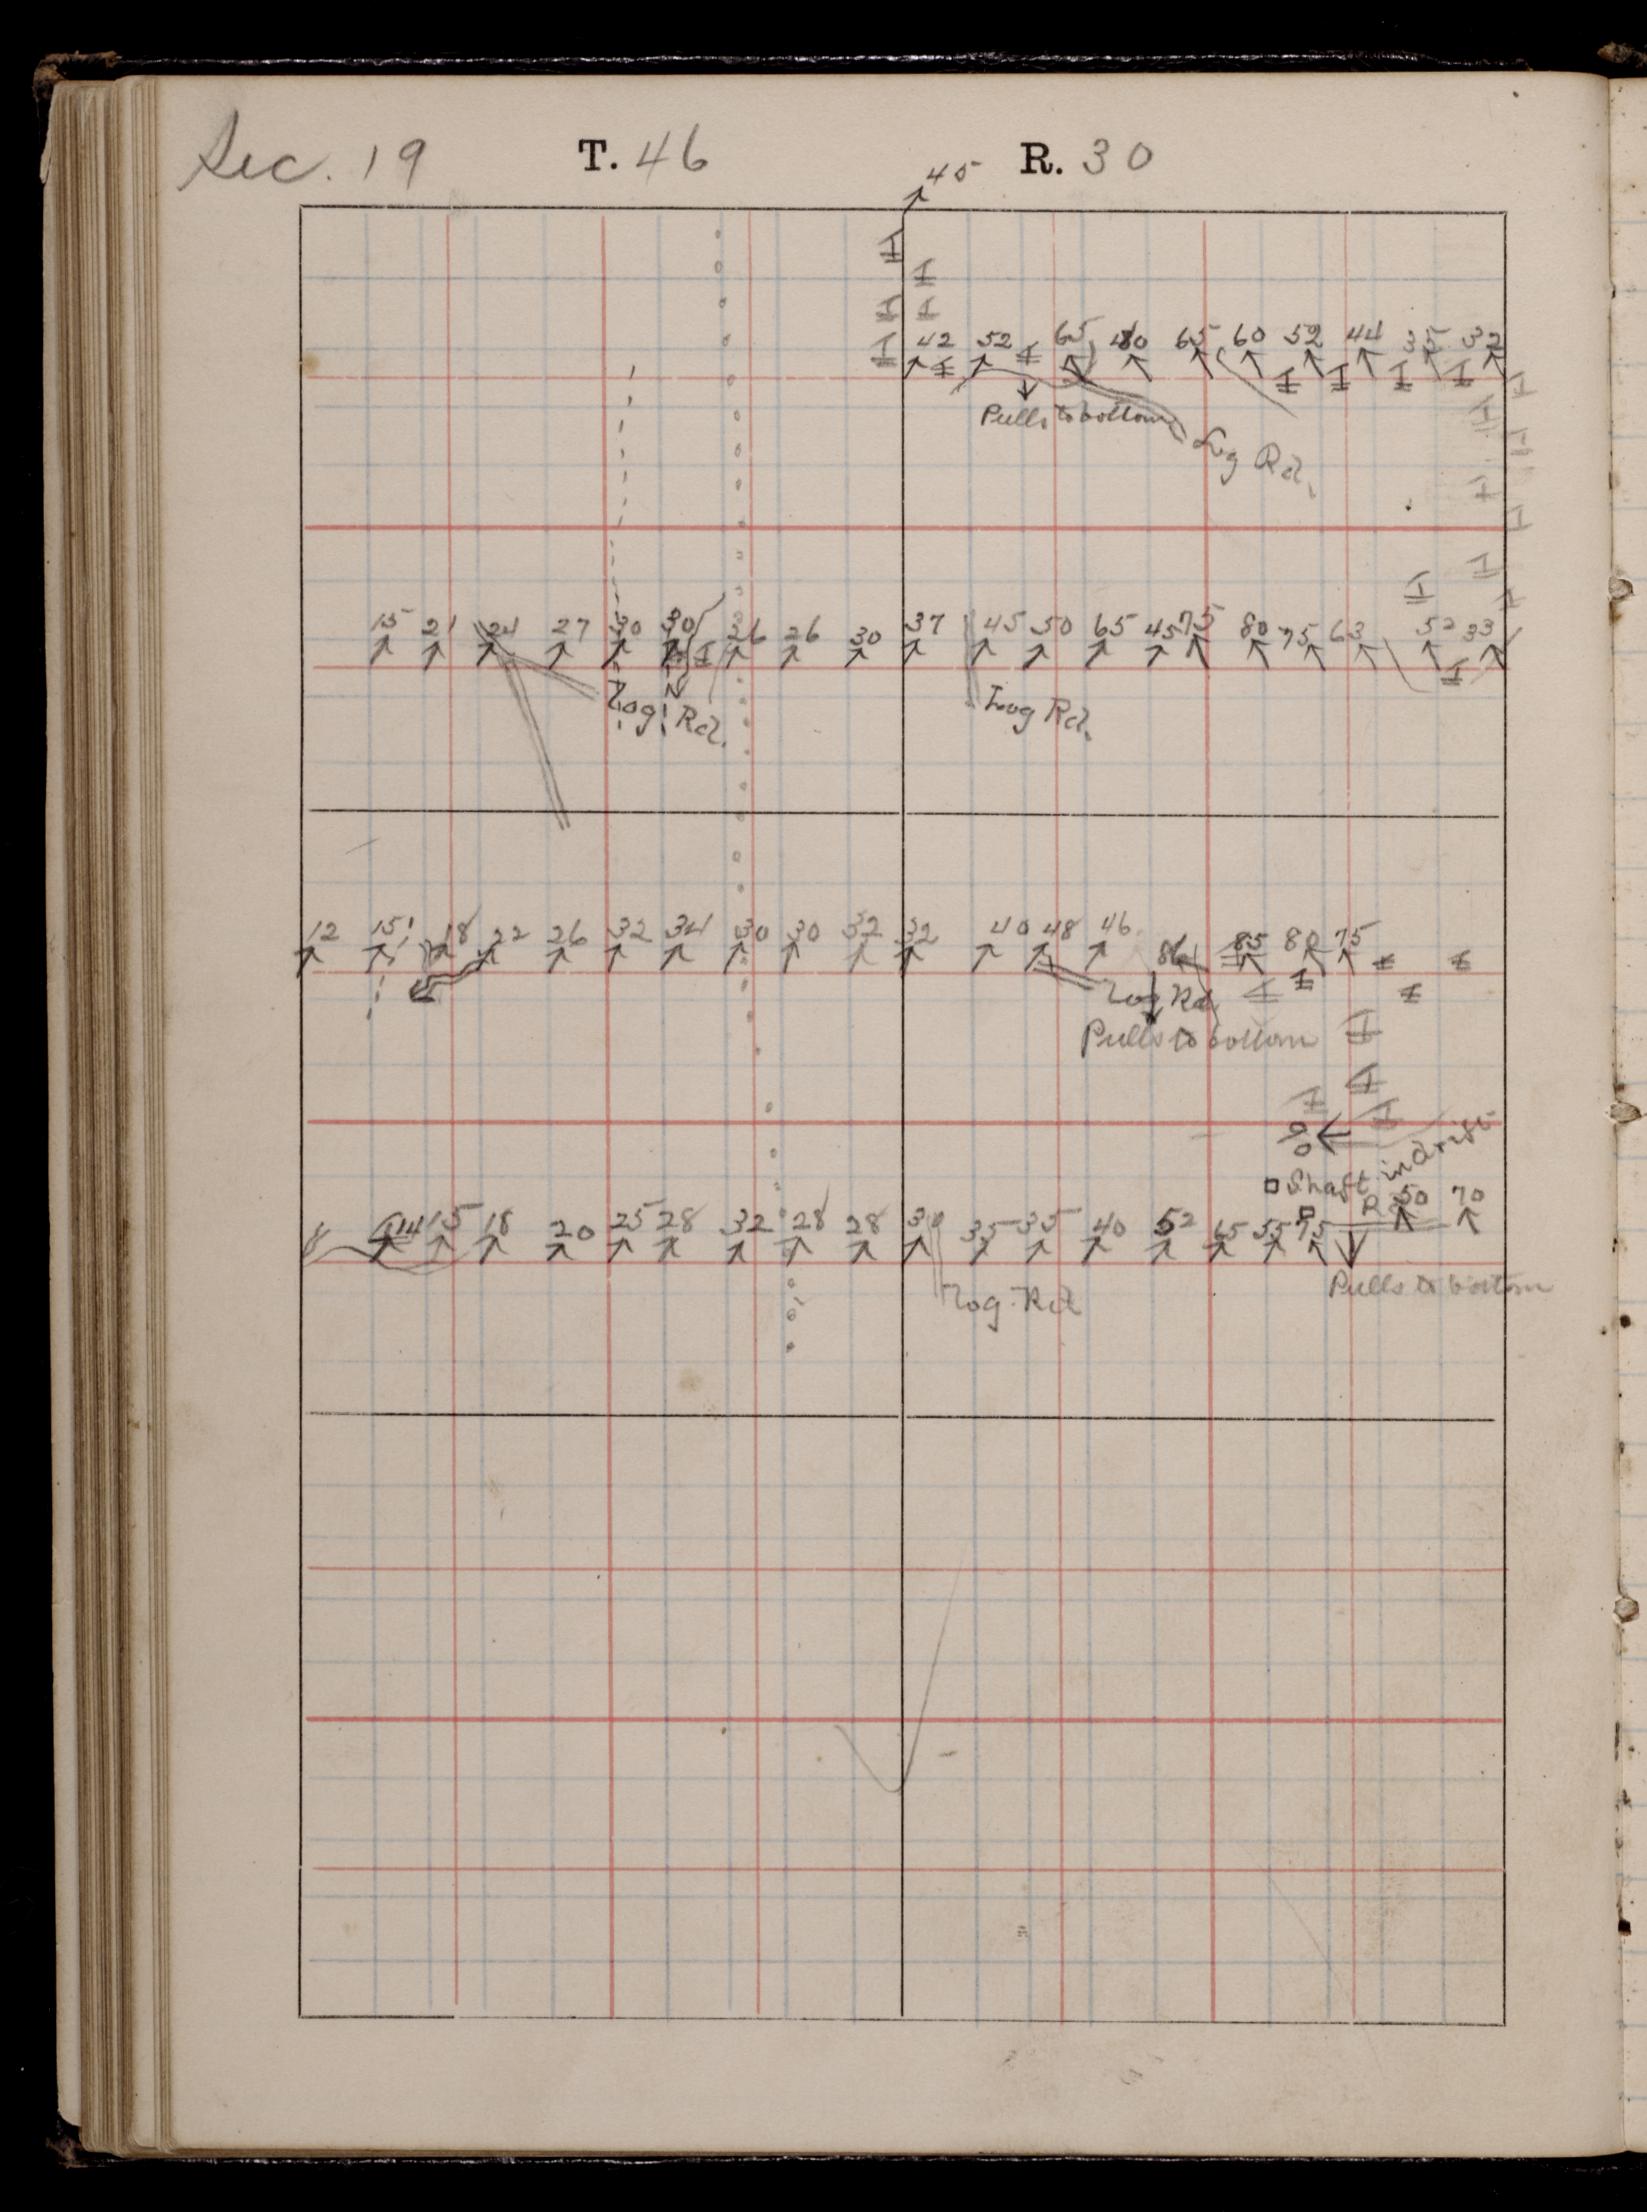 Sec. 19 T. 46 R. 30
45
42 52 65 80 65 60 52 44 35 32
Pulls to bottom
Log Rd.
15 21 24 27 30 30 26 26 30 37 45 50 65 45 75 80 75 63 52 33
Log Rd. Log Rd.
12 15 18 22 26 32 34 30 30 32 32 40 48 46 86 85 80 75
Log Rd
Pulls to bottom
90
Shaft in drift
Rd 50 70
14 15 18 20 25 28 32 28 28 30 35 35 40 52 65 55 75
Log Rd
Pulls to bottom